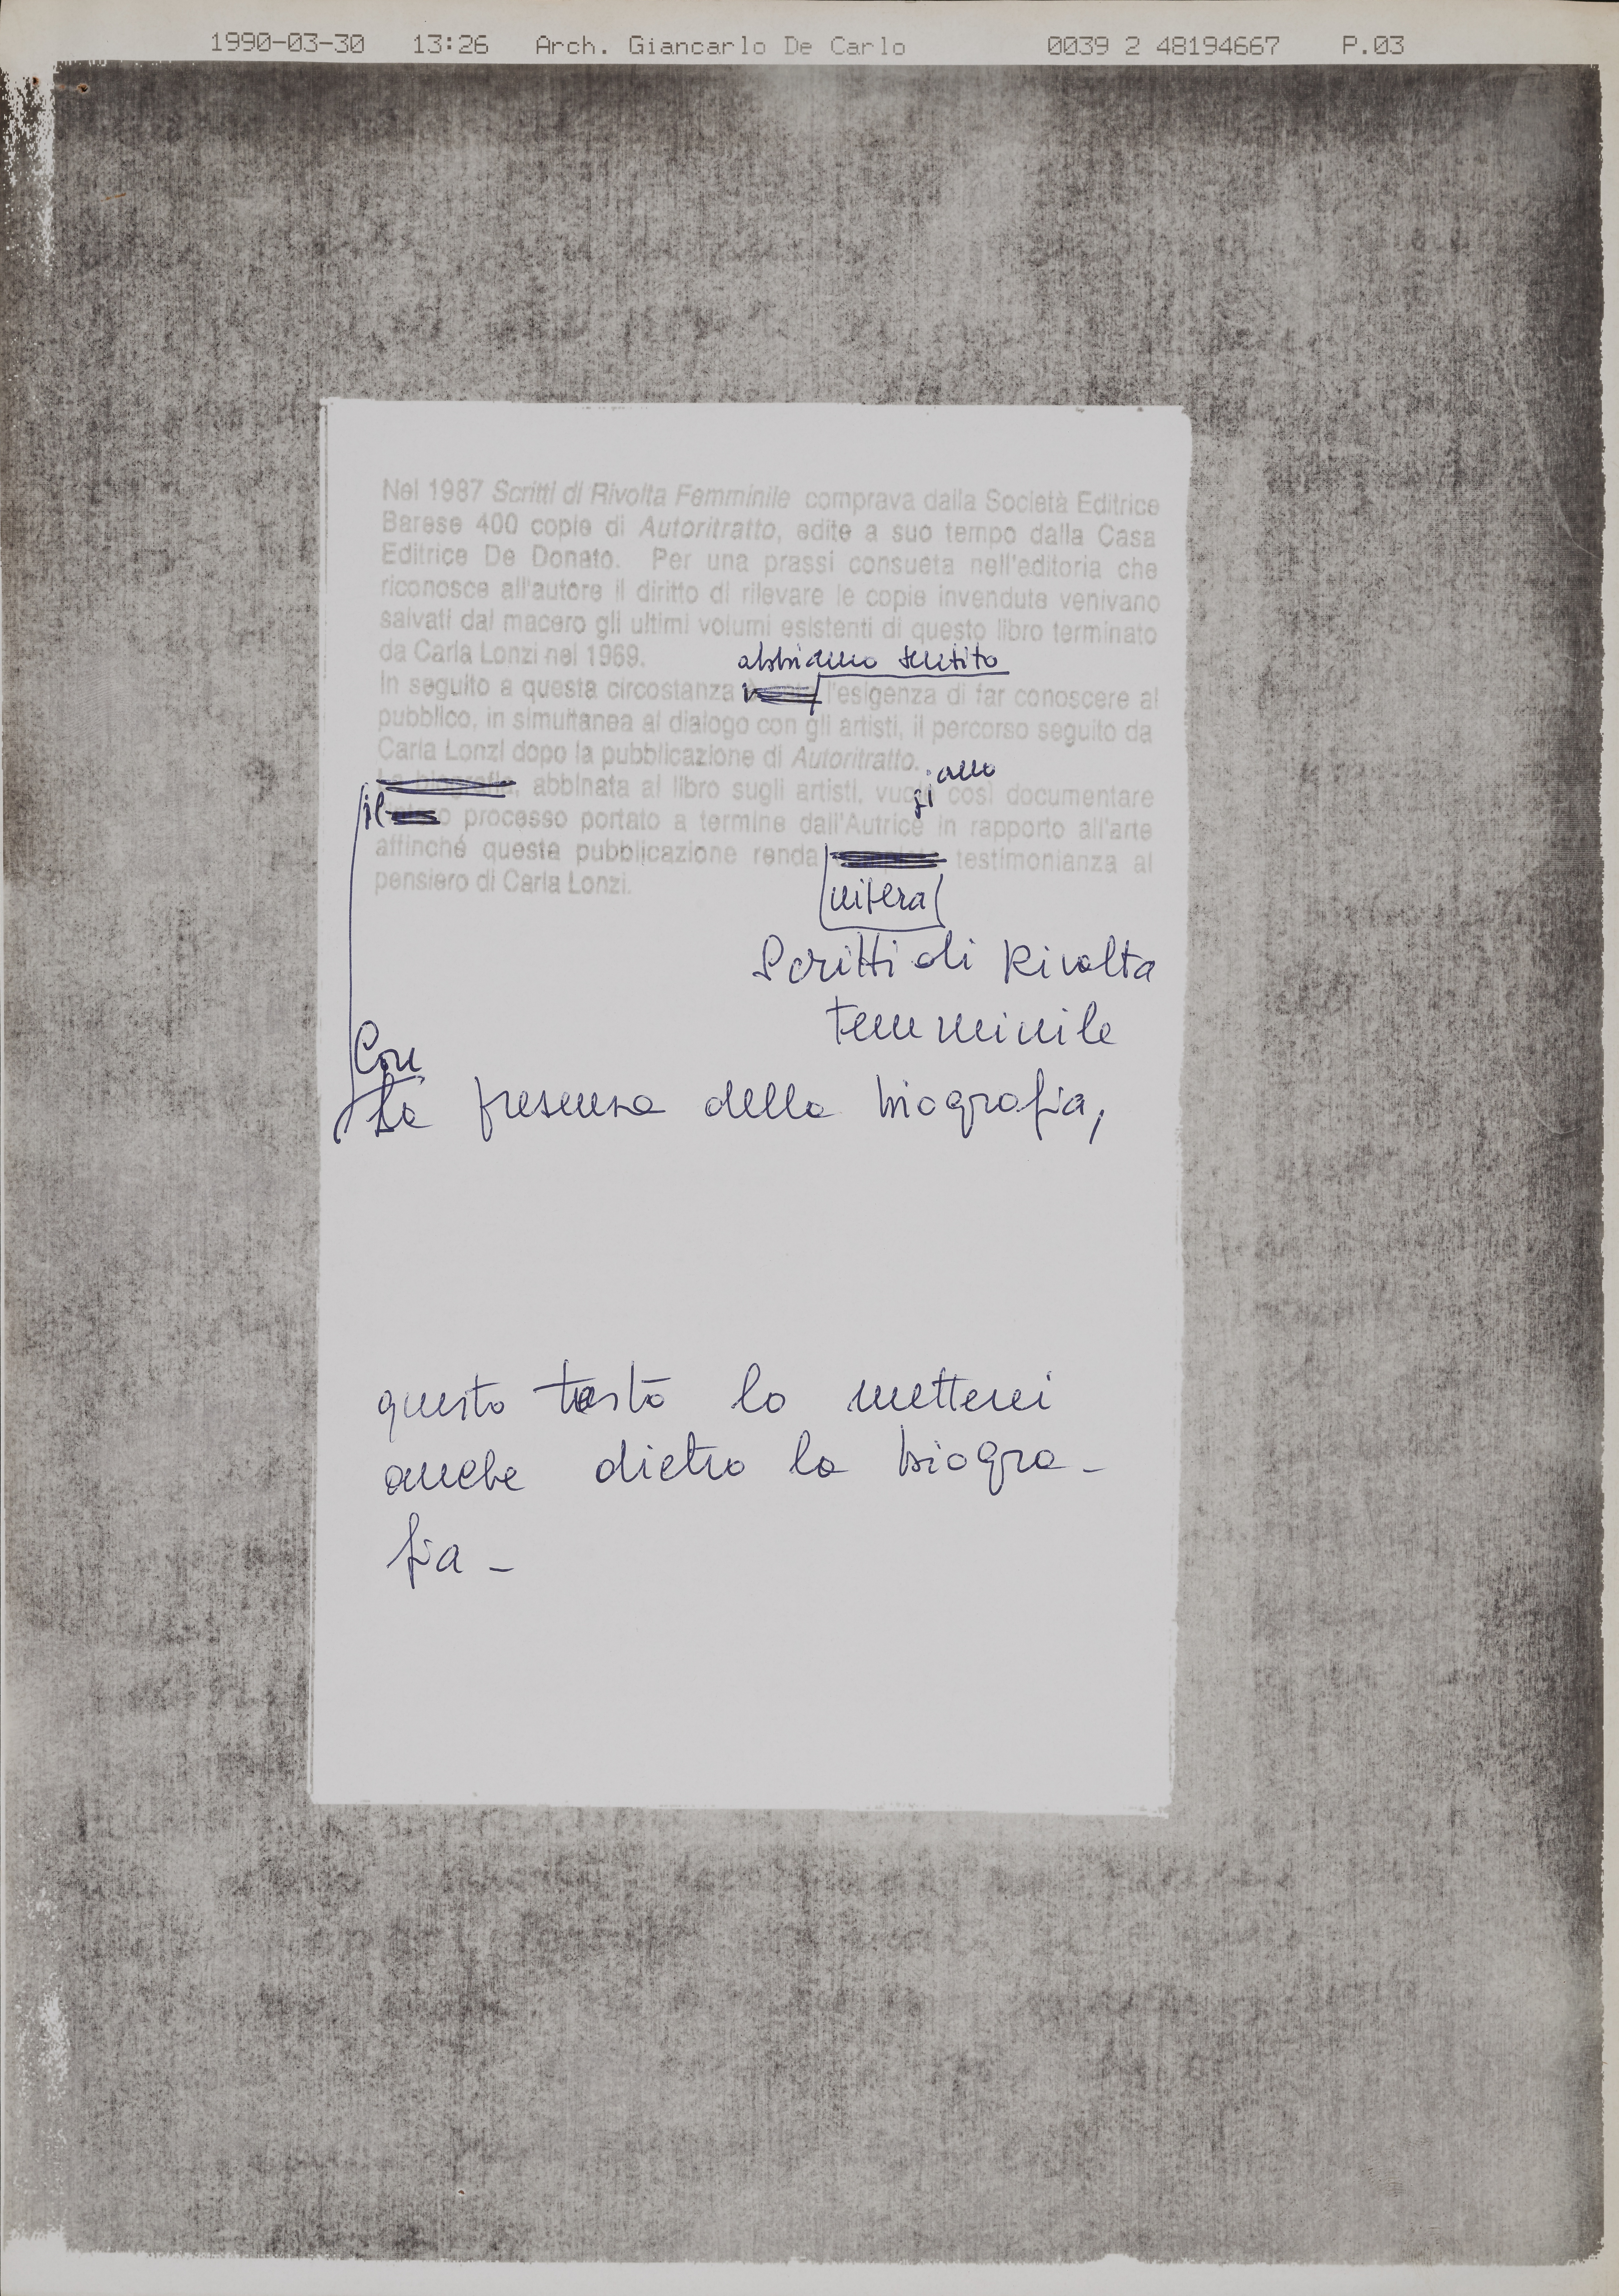 1990-03-30 13:26 Arch. Giancarlo De Carlo 0039 2 48194667 P.03
Nel 1987 Scritti di Rivolta Femminile comprava dalla Società Editrice
Barese 400 copie di Autoritratto, edite a suo tempo dalla Casa
Editrice De Donato. Per una prassi consueta nell'editoria che
riconosce all'autore il diritto di rilevare le copie invendute venivano
salvati dal macero gli ultimi volumi esistenti di questo libro terminato
da Carla Lonzi nel 1969.
abbiamo sentito
In seguito a questa circostanza l'esigenza di far conoscere al
pubblico, in simultanea al dialogo con gli artisti, il percorso seguito da
Carla Lonzi dopo la pubblicazione di Autoritratto.
iamo
La biografia, abbinata al libro sugli artisti, vuole così documentare
il processo portato a termine dall'Autrice in rapporto all'arte
affinché questa pubblicazione renda testimonianza al
pensiero di Carla Lonzi.
intera
Scritti di Rivolta
Femminile
Con
la presenza della biografia,
questo testo lo metterei
anche dietro la biogra-
fia -